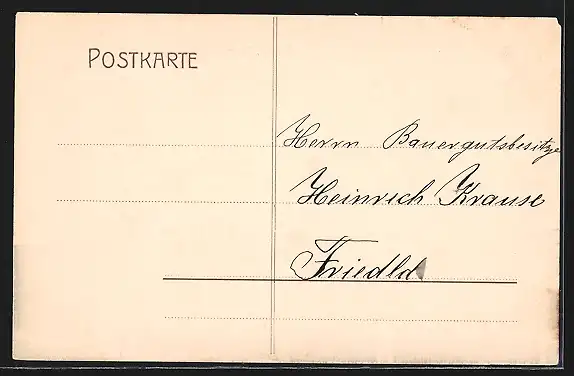 POSTKARTE
Herrn Bauergutsbesitze
Heinrich Krause
Friedld